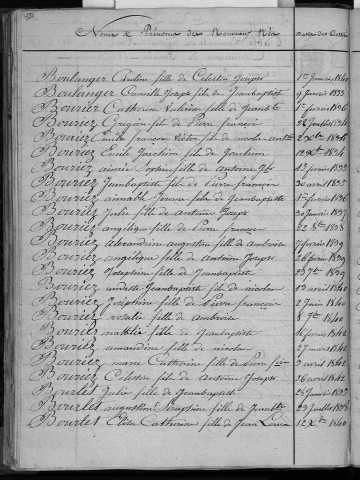 Noms & Prénoms des Nouveaux Nés
Boulanger fille de Célestin Joseph 1er Janvier 1840
Boulanger Camille Joseph fils de Jeanbaptiste 9 février 1833
Bouriez Catherine Valérie fille de Jeanbte 1er février 1836
Bouriez Grégoire fils de Pierre françois 1834
Bouriez Emile françois Victor fils de nicolas 1838
Bouriez Emile Joachim fils de Joachim 1834
Bouriez aimée Sophie fille de antoine Jh 13 février 1833
Bouriez Jeanbaptiste fils de Pierre françois 30 avril 1835
Bouriez aimable fils de Jeanbaptiste 1er février 1836
Bouriez Julie fille de antoine Joseph 30 Janvier 1837
Bouriez angélique fille de Pierre françois 22 8bre 1838
Bouriez alexandrine augustine fille de ambroise 7 février 1839
Bouriez angélique fille de antoine Joseph 26 février 1839
Bouriez Joséphine fille de Jeanbaptiste 1839
Bouriez modeste Jeanbaptiste fils de nicolas 13 avril 1840
Bouriez Joséphine fille de Pierre françois 2 Juin 1840
Bouriez rosalie fille de ambroise 8 7bre 1840
Bouriez fils de Jeanbaptiste 16 février 1842
Bouriez amandine fille de nicolas 27 mars 1842
Bouriez marie Catherine fille de Pierre fois 3 avril 1842
Bouriez Célestin fils de antoine Joseph 26 avril 1842
Bourlet Julie fille de Jeanbaptiste 25 Janvier 1835
Bourlet augustine Séraphine fille de Jeanbte 23 Juillet 1838
Bourlet Elise Catherine fille de Jean Louis 12 Xbre 1840